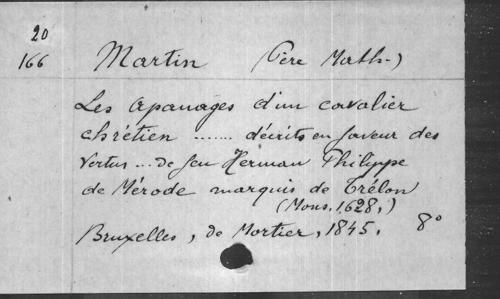 20
166 Martin (Père Math-)
Les apanages d'un cavalier
chrétien ........ décrits en faveur des
vertus ... de feu Herman Philippe
de Mérode marquis de Trélon
(Mons, 1628,)
Bruxelles, de Mortier, 1845. 8°